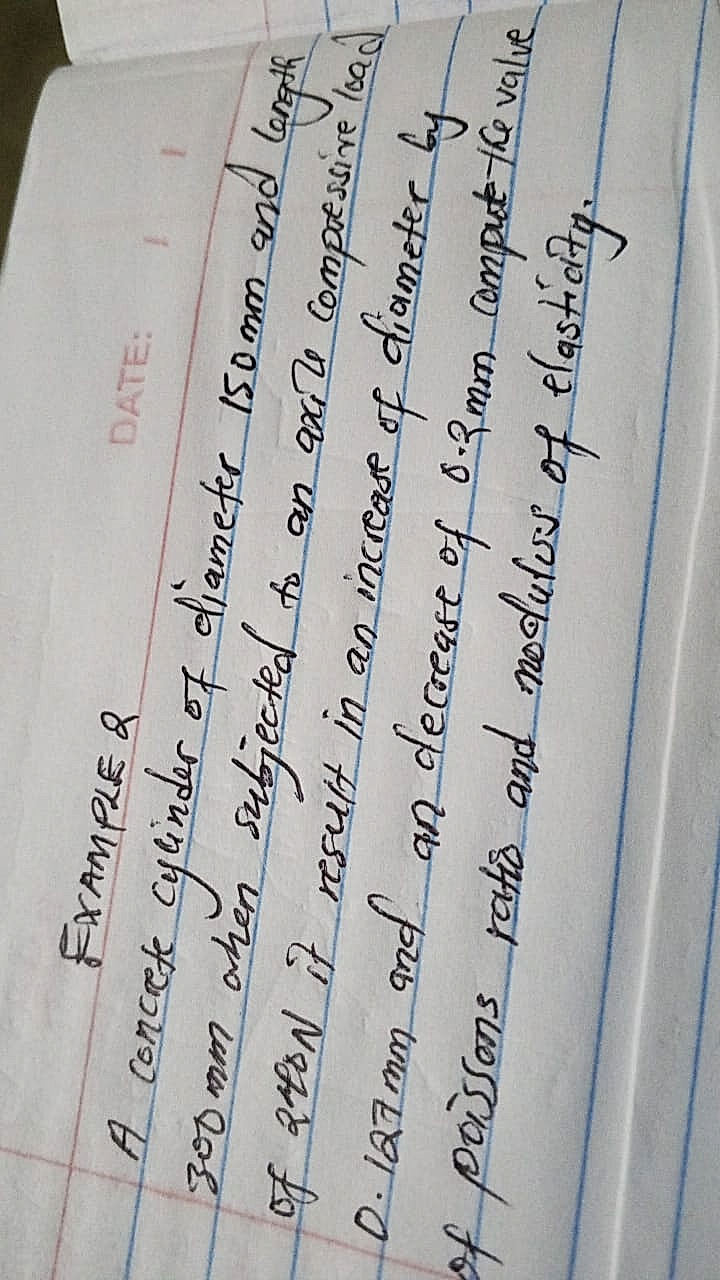 DATE:
EXAMPLE 2
A concrete cylinder of diameter 150mm and length
300mm when subjected to an axile compressive load
of 240N it result in an increase of diameter by
0.127mm and an decrease of 0.2mm compute the value
of poissons ratio and modulus of elasticity.